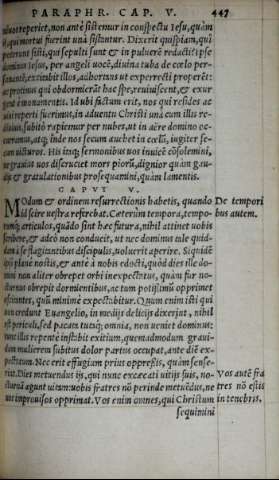 PARAPHR. CAP. V. 447
uiuos reperiet, non ante sistemur in conspectu Iesu, quàm
qui mortui fuerint unà sistantur. Dixerit quispiam, qui
poterunt sisti, qui sepulti sunt & in puluerē redacti? ipse
dominus Iesus, per angeli uocē, diuina tuba de cœlo per-
sonante, excitabit illos, adhortans ut experrecti properēt:
ac protinus qui obdormierāt hac spe, reuiuiscent, & exur
gent è monumentis. Id ubi factum erit, nos qui resides ac
uiui reperti fuerimus, in aduentu Christi unà cum illis re-
subitò rapiemur per nubes, ut in aëre domino oc-
curramus, atq; inde nos secum auehet in cœlū, iugiter se-
cum uicturos. His itaq; sermonibus uos inuicē cōsolemini,
ne grauius uos discruciet mors piorū, dignior quàm gau-
dijs & gratulationibus prosequamini, quàm lamentis.
CAPVT V.
MOdum & ordinem resurrectionis habetis, quando De tempori
id scire uestra referebat. Cæterùm tempora, tempo- bus autem.
rumq; articulos, quādo sint hæc futura, nihil attinet uobis
scribere, & adeò non conducit, ut nec dominus tale quid-
dam flagitantibus discipulis, uoluerit aperire. Siquidē
plane nostis, & ante à nobis edocti, quòd dies ille do-
mini non aliter obrepet orbi inexpectatus, quàm fur no-
cturnus obrepit dormientibus, ac tum potissimū opprimet
nescientes, quū minimè expectabitur. Quum enim isti qui
non credunt Euangelio, in medijs delicijs dixerint, nihil
est periculi, sed pacata tutaq; omnia, non ueniet dominus:
tunc illis repentè instabit exitium, quemadmodum graui-
dam mulierem subitus dolor partus occupat, ante diē ex-
pectatum. Nec erit effugiam prius oppreßis, quàm sense-
rint. Dies metuendus ijs, qui nunc excæcati uitijs suis, no- Vos autē fra
cturnā agunt uitam: uobis fratres nō perinde metuēdus, ne tres nō estis
uos improuisos opprimat. Vos enim omnes, qui Christum in tenebris.
sequimini